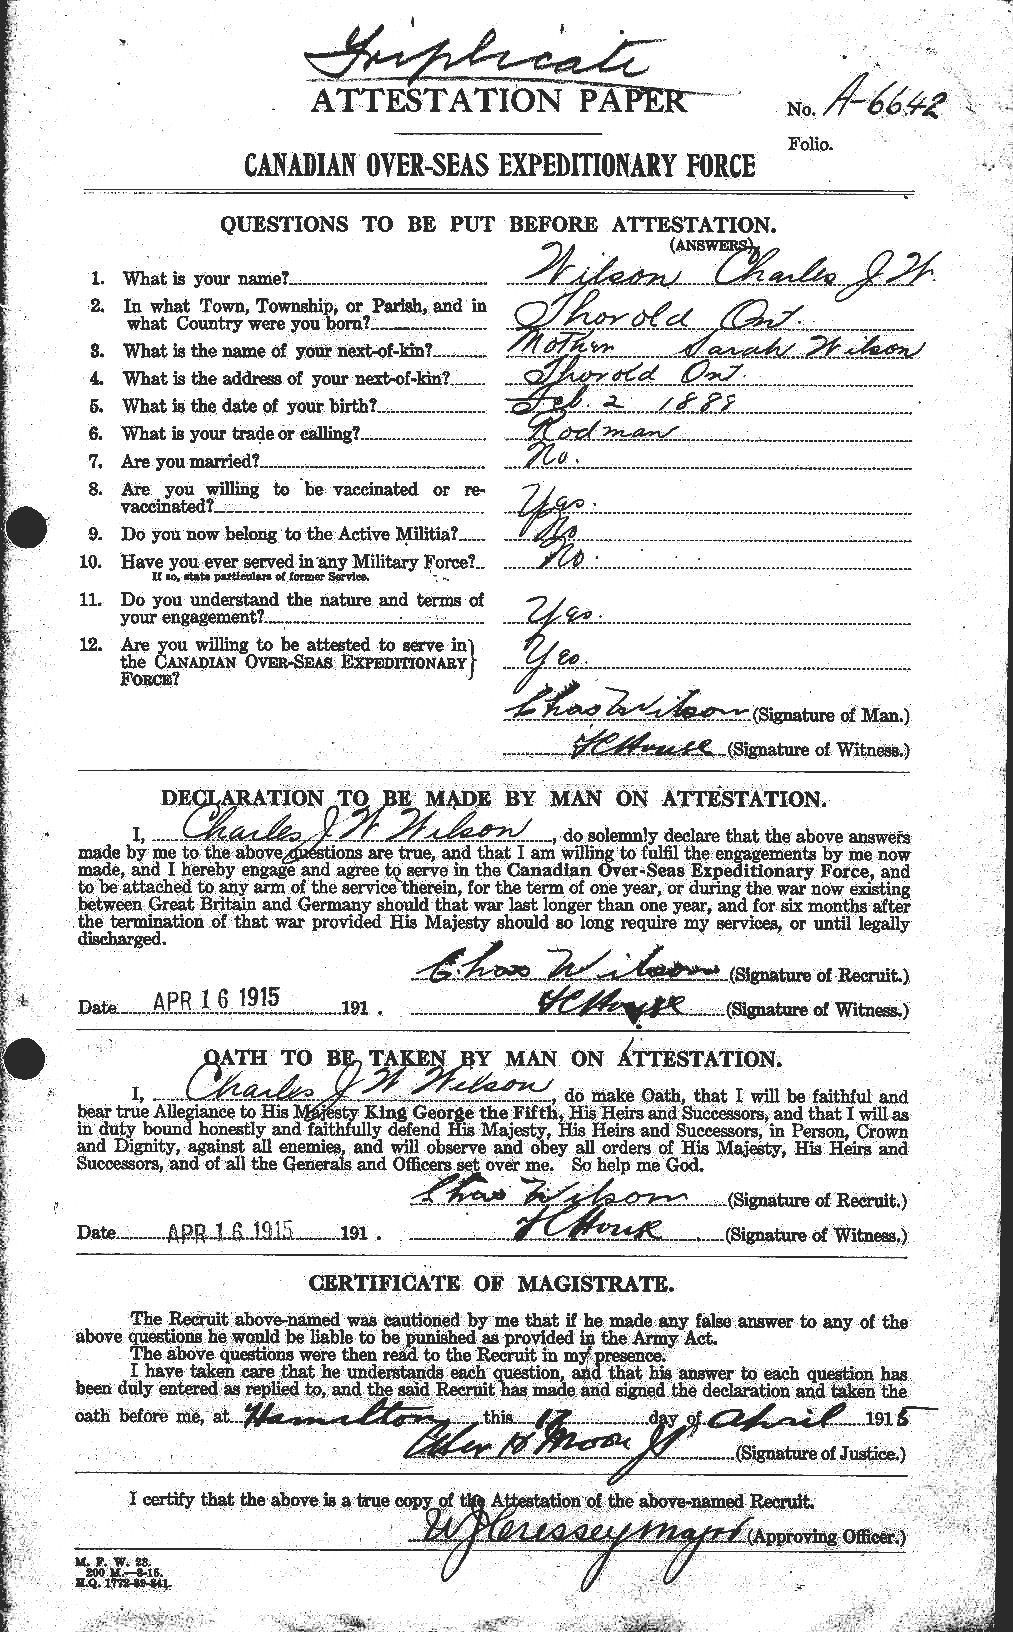 Triplicate
ATTESTATION PAPER
No. A-6642
Folio.
CANADIAN OVER-SEAS EXPEDITIONARY FORCE
QUESTIONS TO BE PUT BEFORE ATTESTATION.
(ANSWERS)
1. What is your name? Wilson Charles J. W.
2. In what Town, Township, or Parish, and in
what Country were you born? Thorold Ont.
3. What is the name of your next-of-kin? Mother Sarah Wilson
4. What is the address of your next-of-kin? Thorold Ont.
5. What is the date of your birth? Feb. 2 1888
6. What is your trade or calling? Rodman
7. Are you married? No.
8. Are you willing to be vaccinated or re-
vaccinated? Yes.
9. Do you now belong to the Active Militia? No
10. Have you ever served in any Military Force? No.
If so, state particulars of former Service.
11. Do you understand the nature and terms of
your engagement? Yes.
12. Are you willing to be attested to serve in
the CANADIAN OVER-SEAS EXPEDITIONARY Yes.
FORCE?
Chas Wilson (Signature of Man.)
(Signature of Witness.)
DECLARATION TO BE MADE BY MAN ON ATTESTATION.
I, Charles J W Wilson, do solemnly declare that the above answers
made by me to the above questions are true, and that I am willing to fulfil the engagements by me now
made, and I hereby engage and agree to serve in the Canadian Over-Seas Expeditionary Force, and
to be attached to any arm of the service therein, for the term of one year, or during the war now existing
between Great Britain and Germany should that war last longer than one year, and for six months after
the termination of that war provided His Majesty should so long require my services, or until legally
discharged.
Chas Wilson (Signature of Recruit.)
Date APR 16 1915 191 . (Signature of Witness.)
OATH TO BE TAKEN BY MAN ON ATTESTATION.
I, Charles J W Wilson, do make Oath, that I will be faithful and
bear true Allegiance to His Majesty King George the Fifth, His Heirs and Successors, and that I will as
in duty bound honestly and faithfully defend His Majesty, His Heirs and Successors, in Person, Crown
and Dignity, against all enemies, and will observe and obey all orders of His Majesty, His Heirs and
Successors, and of all the Generals and Officers set over me. So help me God.
Chas Wilson (Signature of Recruit.)
Date APR 16 1915 191 . (Signature of Witness.)
CERTIFICATE OF MAGISTRATE.
The Recruit above-named was cautioned by me that if he made any false answer to any of the
above questions he would be liable to be punished as provided in the Army Act.
The above questions were then read to the Recruit in my presence.
I have taken care that he understands each question, and that his answer to each question has
been duly entered as replied to, and the said Recruit has made and signed the declaration and taken the
oath before me, at Hamilton this 17 day of April 1915
Moore JP (Signature of Justice.)
I certify that the above is a true copy of the Attestation of the above-named Recruit.
Major (Approving Officer.)
M. F. W. 23.
200 M.—3-15.
H.Q. 1772-39-841.